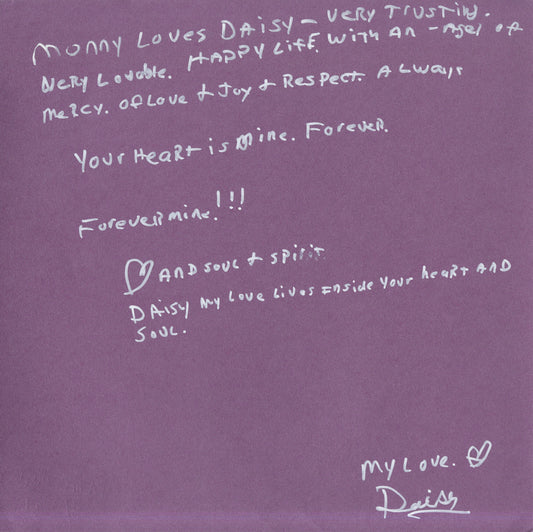 Monny Loves Daisy – very Trusting.
Very Lovable. Happy Life. With An – Agel of
Mercy. of Love + Joy + Respect. Always
Your Heart is Mine. Forever.
Forever mine!!!
♡ And soul + spirit
Daisy my Love Lives Inside Your heart And
Soul.
My Love. ♡
Daisy